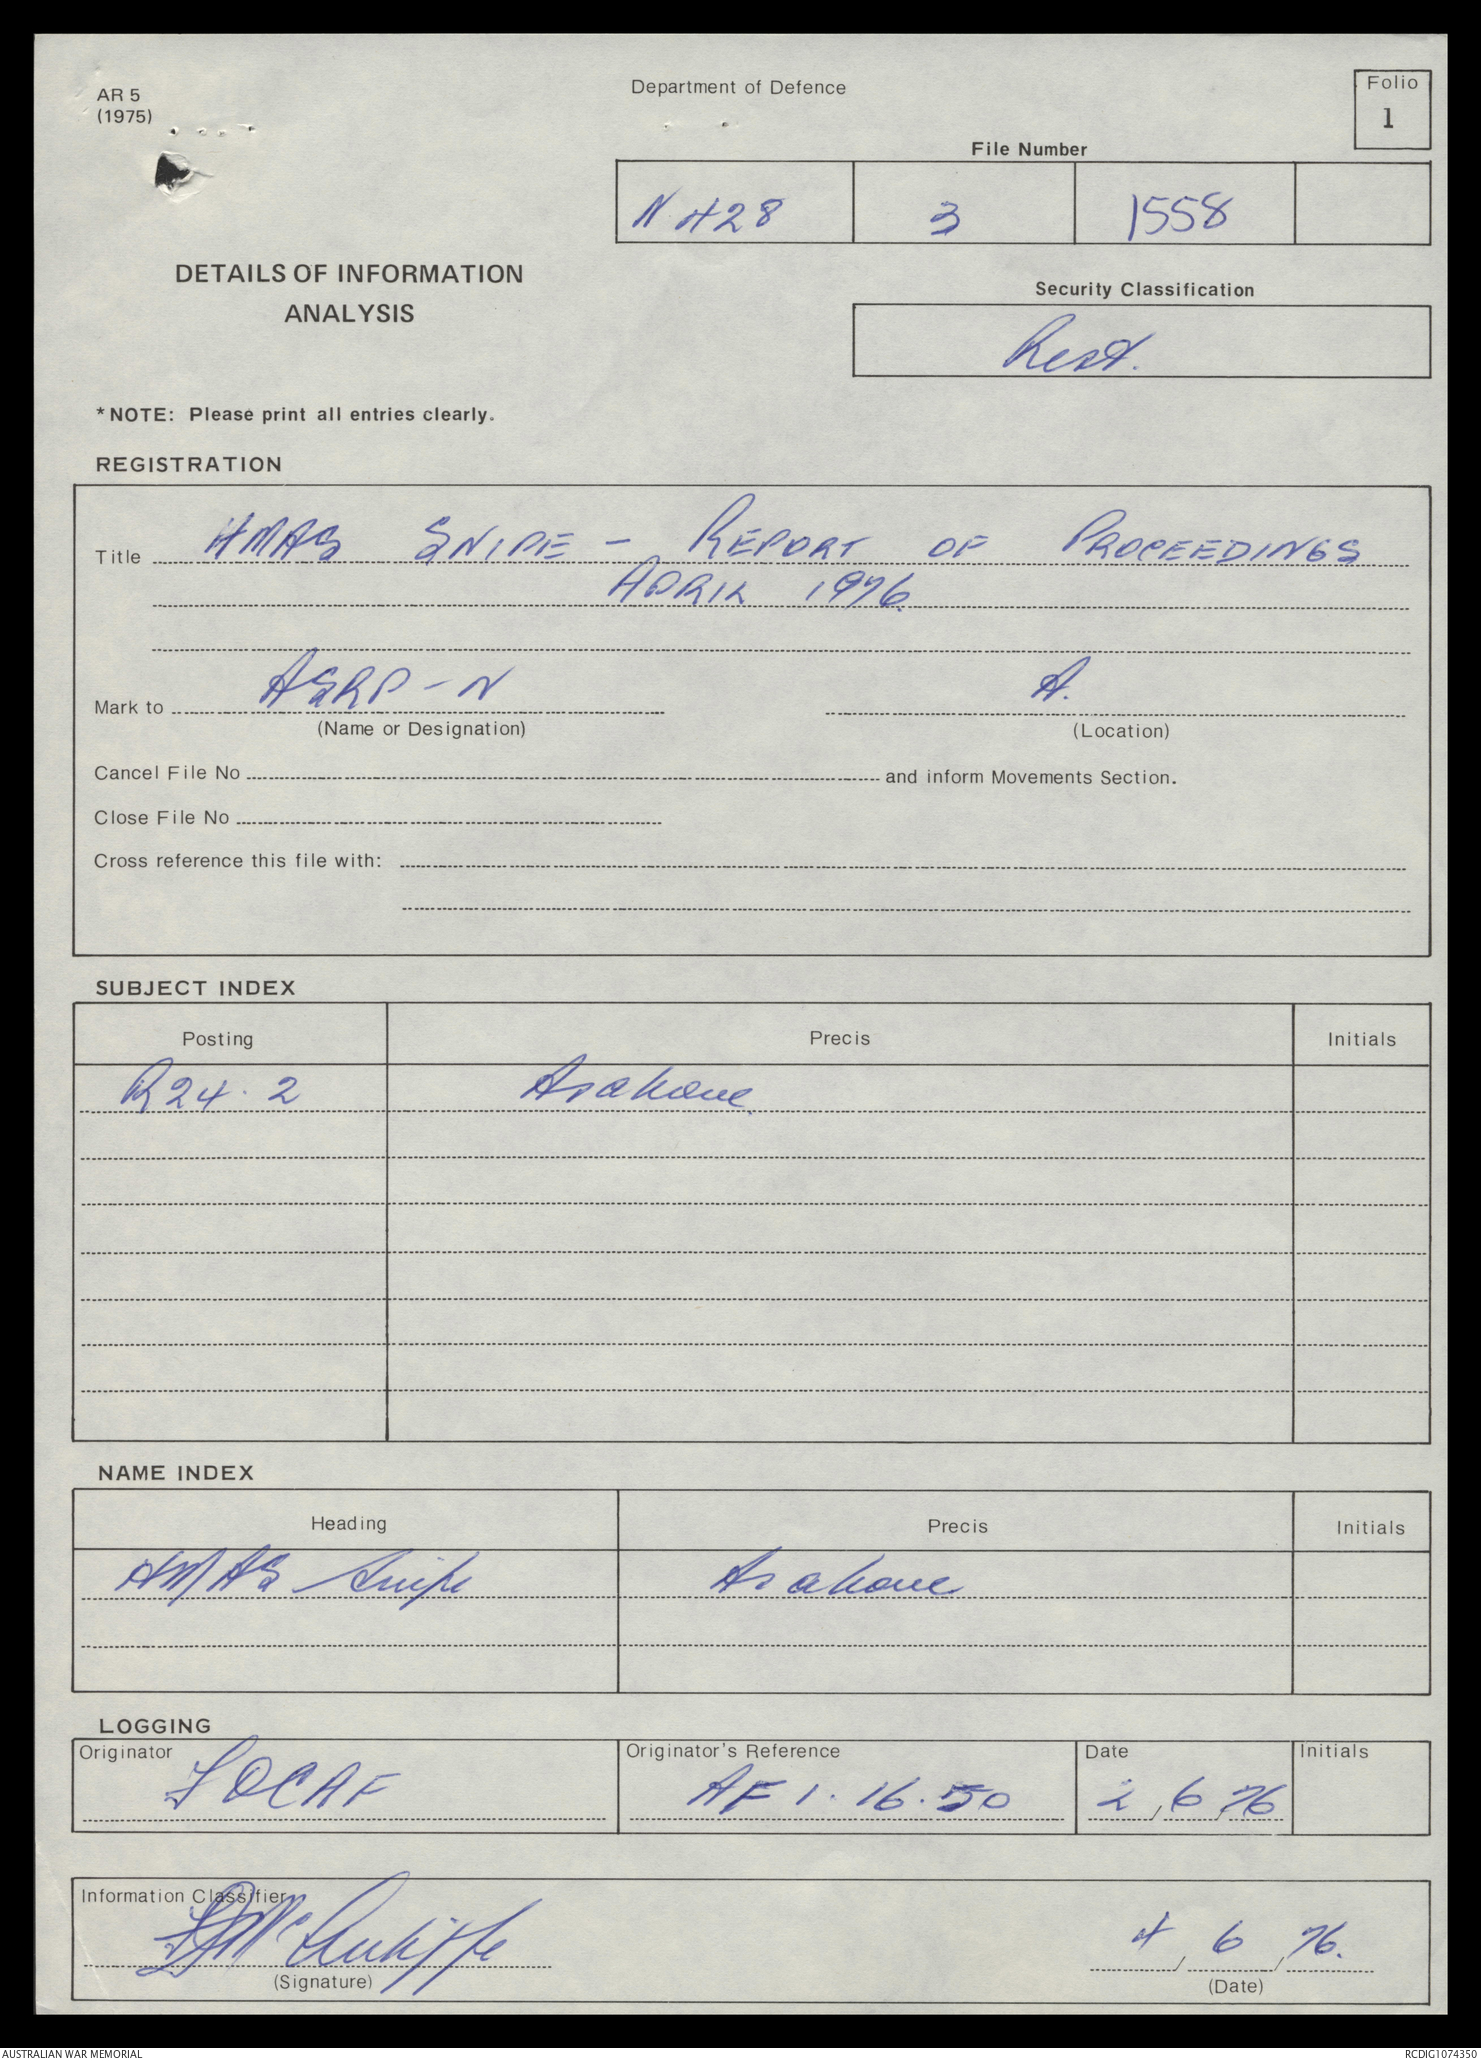 AR 5
(1975)
Department of Defence
Folio
1
File Number
N 428 3 1558
DETAILS OF INFORMATION
ANALYSIS
Security Classification
Rest.
*NOTE: Please print all entries clearly.
REGISTRATION
Title HMAS SNIPE - REPORT OF PROCEEDINGS
APRIL 1976
Mark to ASRP-N A.
(Name or Designation) (Location)
Cancel File No and inform Movements Section.
Close File No
Cross reference this file with:
SUBJECT INDEX
Posting Precis Initials
R24.2 As above
NAME INDEX
Heading Precis Initials
HMAS Snipe As above
LOGGING
Originator Originator's Reference Date Initials
FOCAF AF 1.16.50 2,6,76
Information Classifier
4,6,76.
(Signature) (Date)
AUSTRALIAN WAR MEMORIAL RCDIG1074350